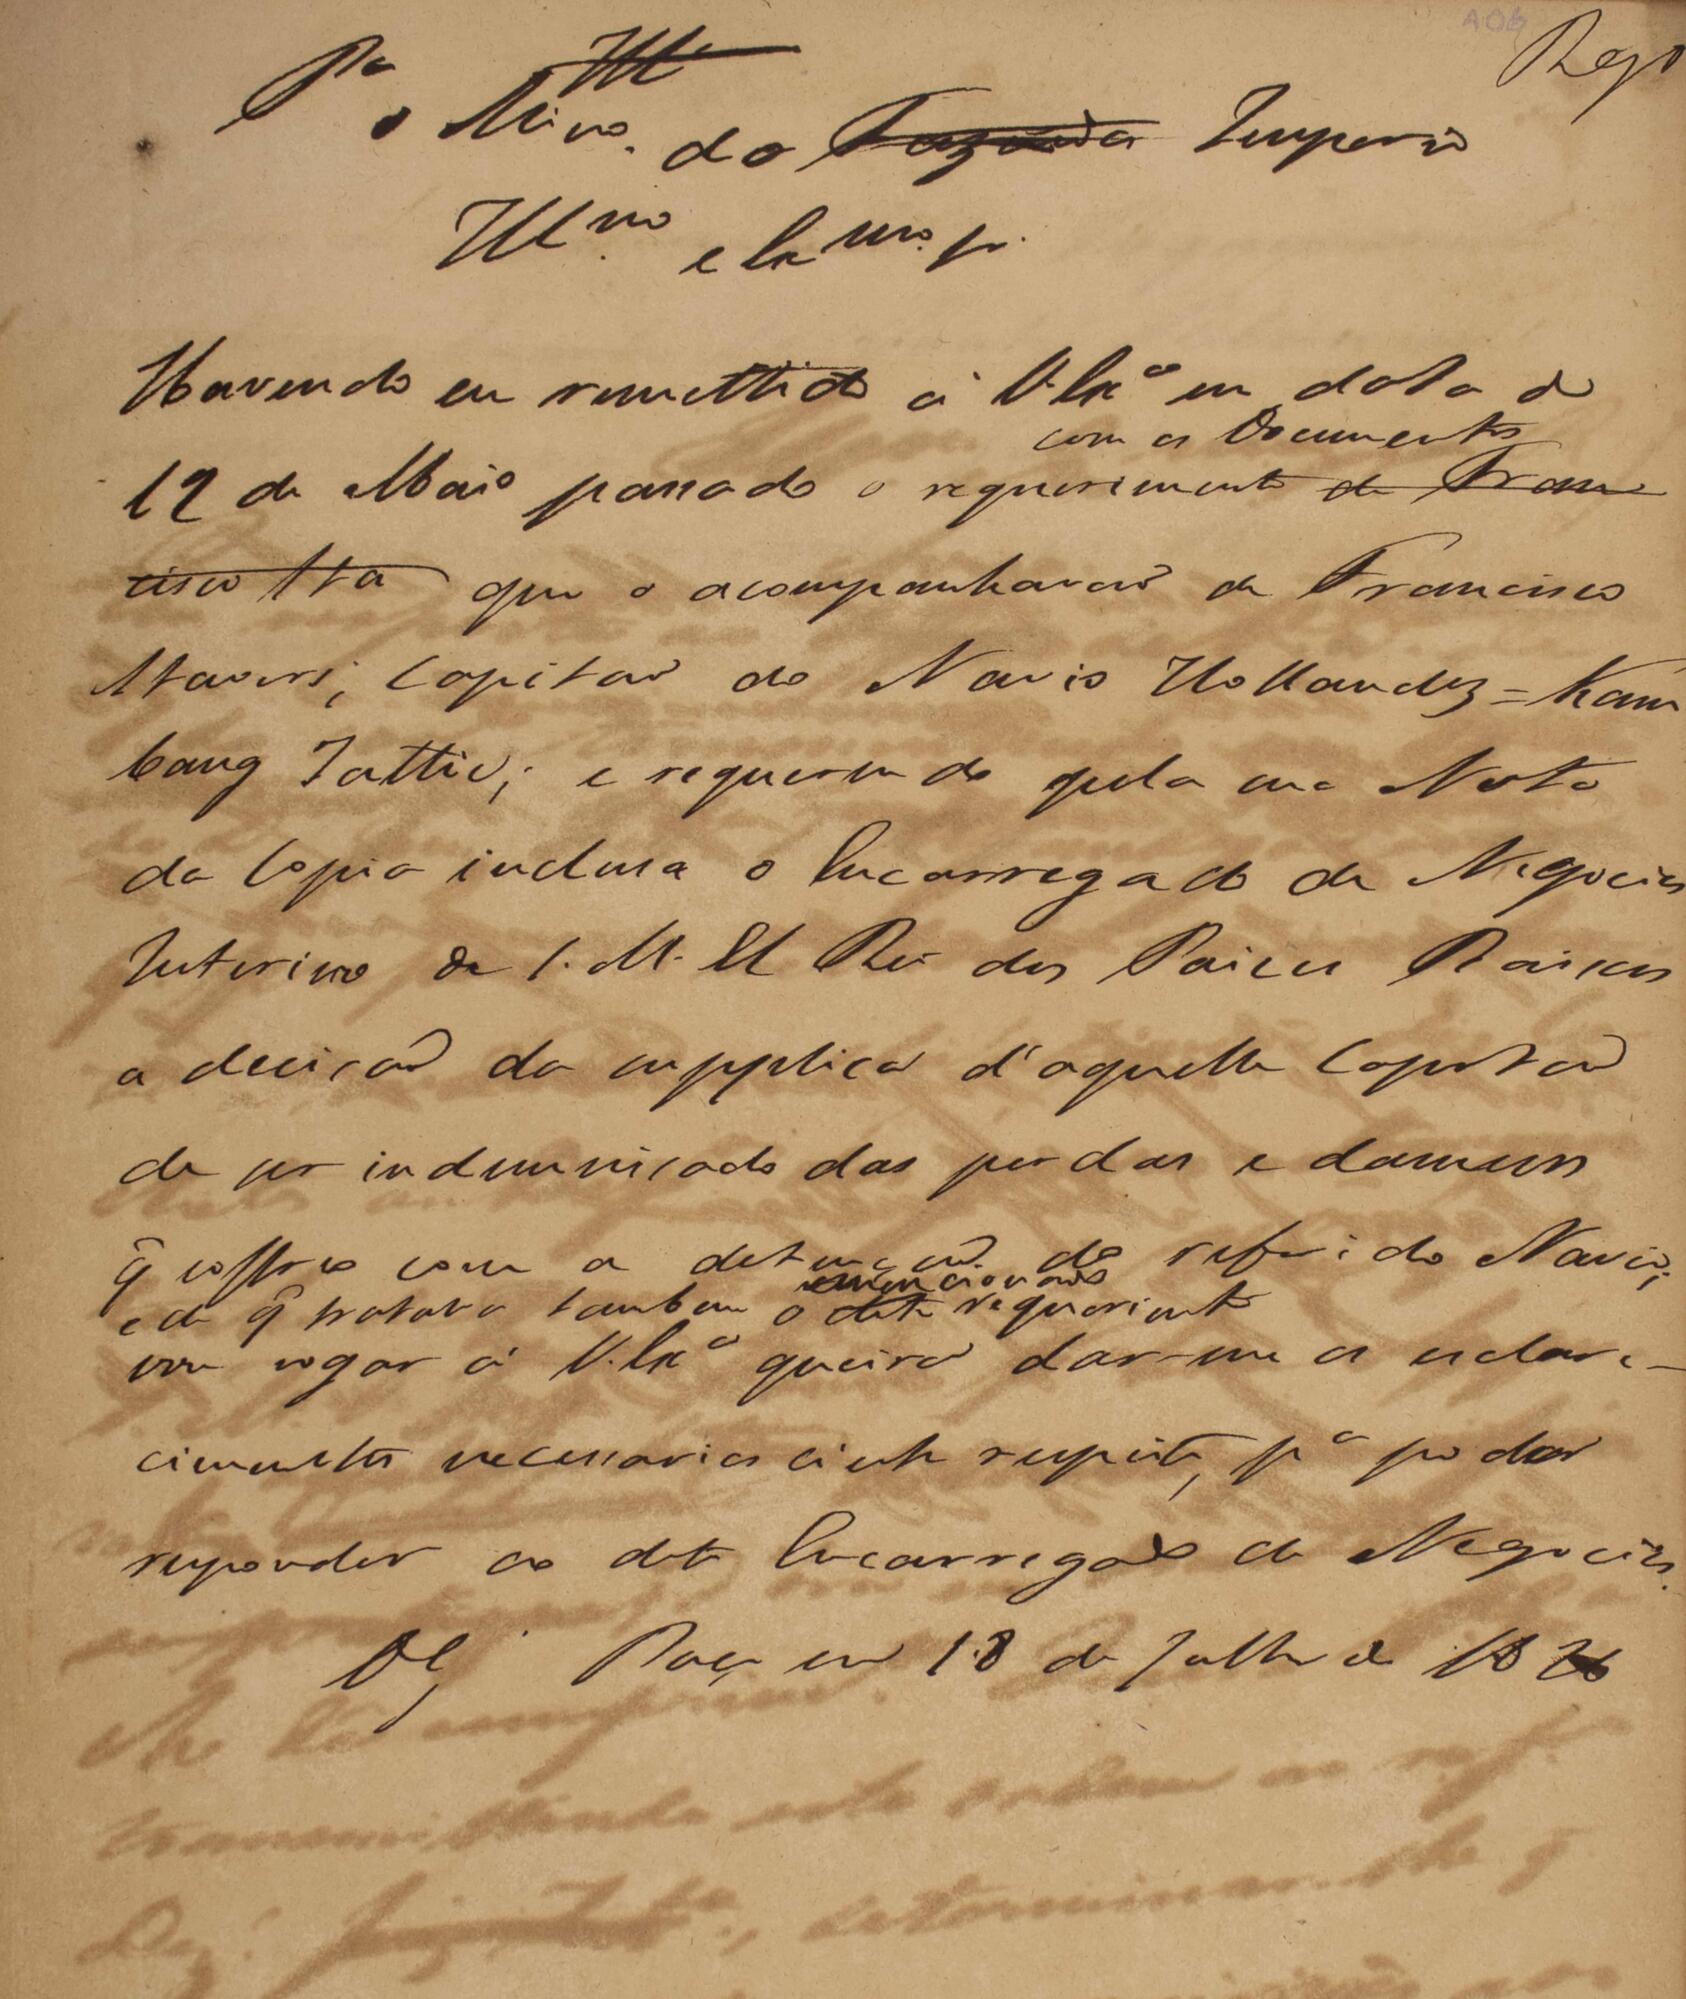 Reg.
P.ª Ill.
o Min.º do Fazenda Imperio
Ill.mo e Ex.mo Sr.
Havendo eu remettido á V. Ex.ª em data de
com os Documentos
12 de Maio passado o requerimento de Fran
cisco Sta que o acompanhavão de Francisco
Capitão do Navio Hollandez = Kam
bang Jattie; e requerendo pela sua Nota
da Copia inclusa o Encarregado de Negocios
Interino de S. M. El Rei dos Paizes Baixos
a decisão da supplica d'aquelle Capitão
de ser indemnisado das perdas e damnos
q̃ soffreo com a detenção do referido Navio;
e de q̃ tratava tambem o dito mencionado requerimento
vou rogar á V. Ex.ª queira dar-me os esclare-
cimentos necessarios a este respeito, p.ª poder
responder ao dito Encarregado de Negocios.
Paço em 18 de Julho de 1826